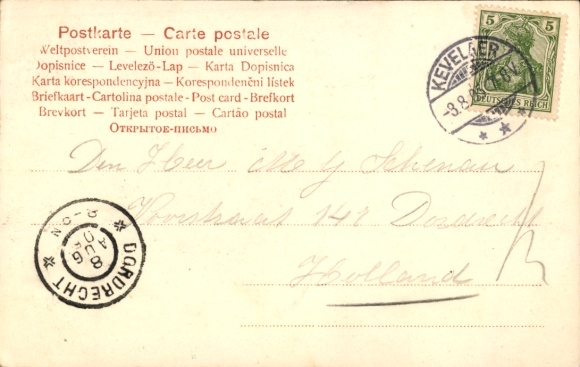 Postkarte — Carte postale
Weltpostverein — Union postale universelle
Dopisnice — Levelező-Lap — Karta Dopisnica
Karta korespondencyjna — Korespondenční lístek
Briefkaart - Cartolina postale - Post card - Brefkort
Brevkort — Tarjeta postal — Cartão postal
ОТКРЫТОЕ-ПИСЬМО
5 5
DEUTSCHES REICH
KEVELAER
-8.8.
Den Heer M J Schenau
Voorstraat 141 Dordrecht
Holland
DORDRECHT
8 AUG